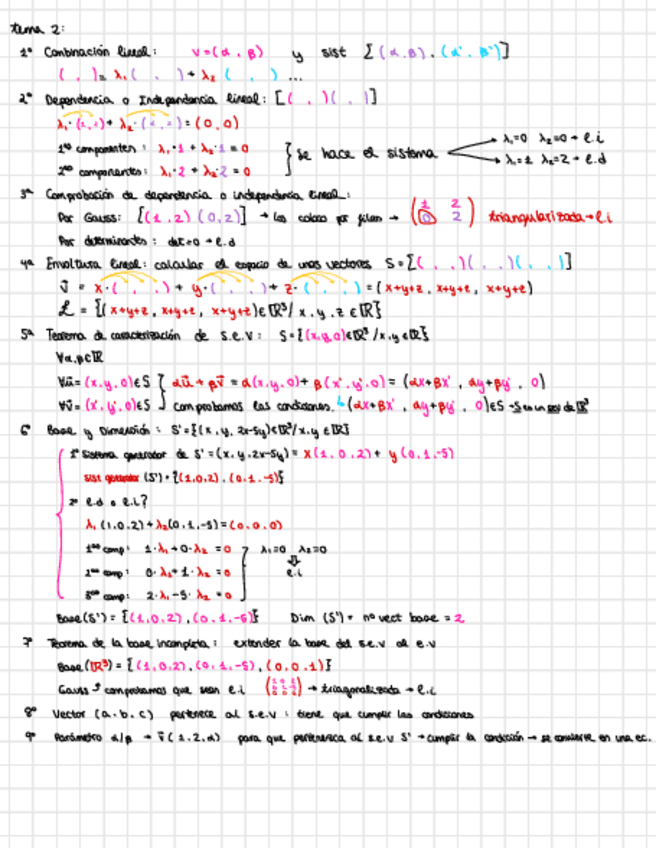 tema 2:
1º Combinación lineal: v=(α, β) y sist [(α,β),(α',β')]
( , )= λ₁( , )+ λ₂( , ) ...
2º Dependencia o Independencia lineal: [( , )( , )]
λ₁·(1,2)+ λ₂·(1,2)=(0,0)
1ªˢ componentes: λ₁·1 + λ₂·1 = 0
2ªˢ componentes: λ₁·2 + λ₂·2 = 0
} se hace el sistema
→ λ₁=0 λ₂=0 → l.i
→ λ₁=1 λ₂=2 → l.d
3º Comprobación de dependencia o independencia lineal:
Por Gauss: [(1,2)(0,2)] → los coloco por filas → (1 2
0 2) triangularizada → l.i
Por determinantes: det=0 → l.d
4º Envoltura lineal: calcular el espacio de unos vectores S=[( , , )( , , )( , , )]
v̄ = x·( , , ) + y·( , , ) + z·( , , ) = (x+y+z, x+y+z, x+y+z)
ℒ = {(x+y+z, x+y+z, x+y+z)∈ℝ³/ x,y,z ∈ℝ}
5º Teorema de caracterización de s.e.v: S={(x,y,0)∈ℝ³/x,y∈ℝ}
∀α,β∈ℝ
∀ū=(x,y,0)∈S } αū + βv̄ = α(x,y,0)+ β(x',y',0) = (αx+βx', αy+βy', 0)
∀v̄=(x',y',0)∈S } comprobamos las condiciones. (αx+βx', αy+βy', 0)∈S → S es un sev de ℝ³
6º Base y Dimensión: S'={(x,y,2x-5y)∈ℝ³/x,y∈ℝ}
1º Sistema generador de S'=(x,y,2x-5y)= x(1,0,2)+ y(0,1,-5)
sist generador (S')={(1,0,2),(0,1,-5)}
2º l.d o l.i?
λ₁(1,0,2)+λ₂(0,1,-5)=(0,0,0)
1ªˢ comp: 1·λ₁+0·λ₂ = 0 λ₁=0 λ₂=0
2ªˢ comp: 0·λ₁+1·λ₂ = 0 ⇓ l.i
3ªˢ comp: 2·λ₁-5·λ₂ = 0
Base(S')={(1,0,2),(0,1,-5)} Dim (S')= nº vect base = 2
7º Teorema de la base incompleta: extender la base del s.e.v al e.v
Base(ℝ³)={(1,0,2),(0,1,-5),(0,0,1)}
Gauss → comprobamos que sean l.i → triagonalizada → l.i
8º Vector (a,b,c) pertenece al s.e.v: tiene que cumplir las condiciones
9º Parámetro α/β → v̄(1,2,α) para que pertenezca al s.e.v S' → cumplir la condición → se convierte en una ec.